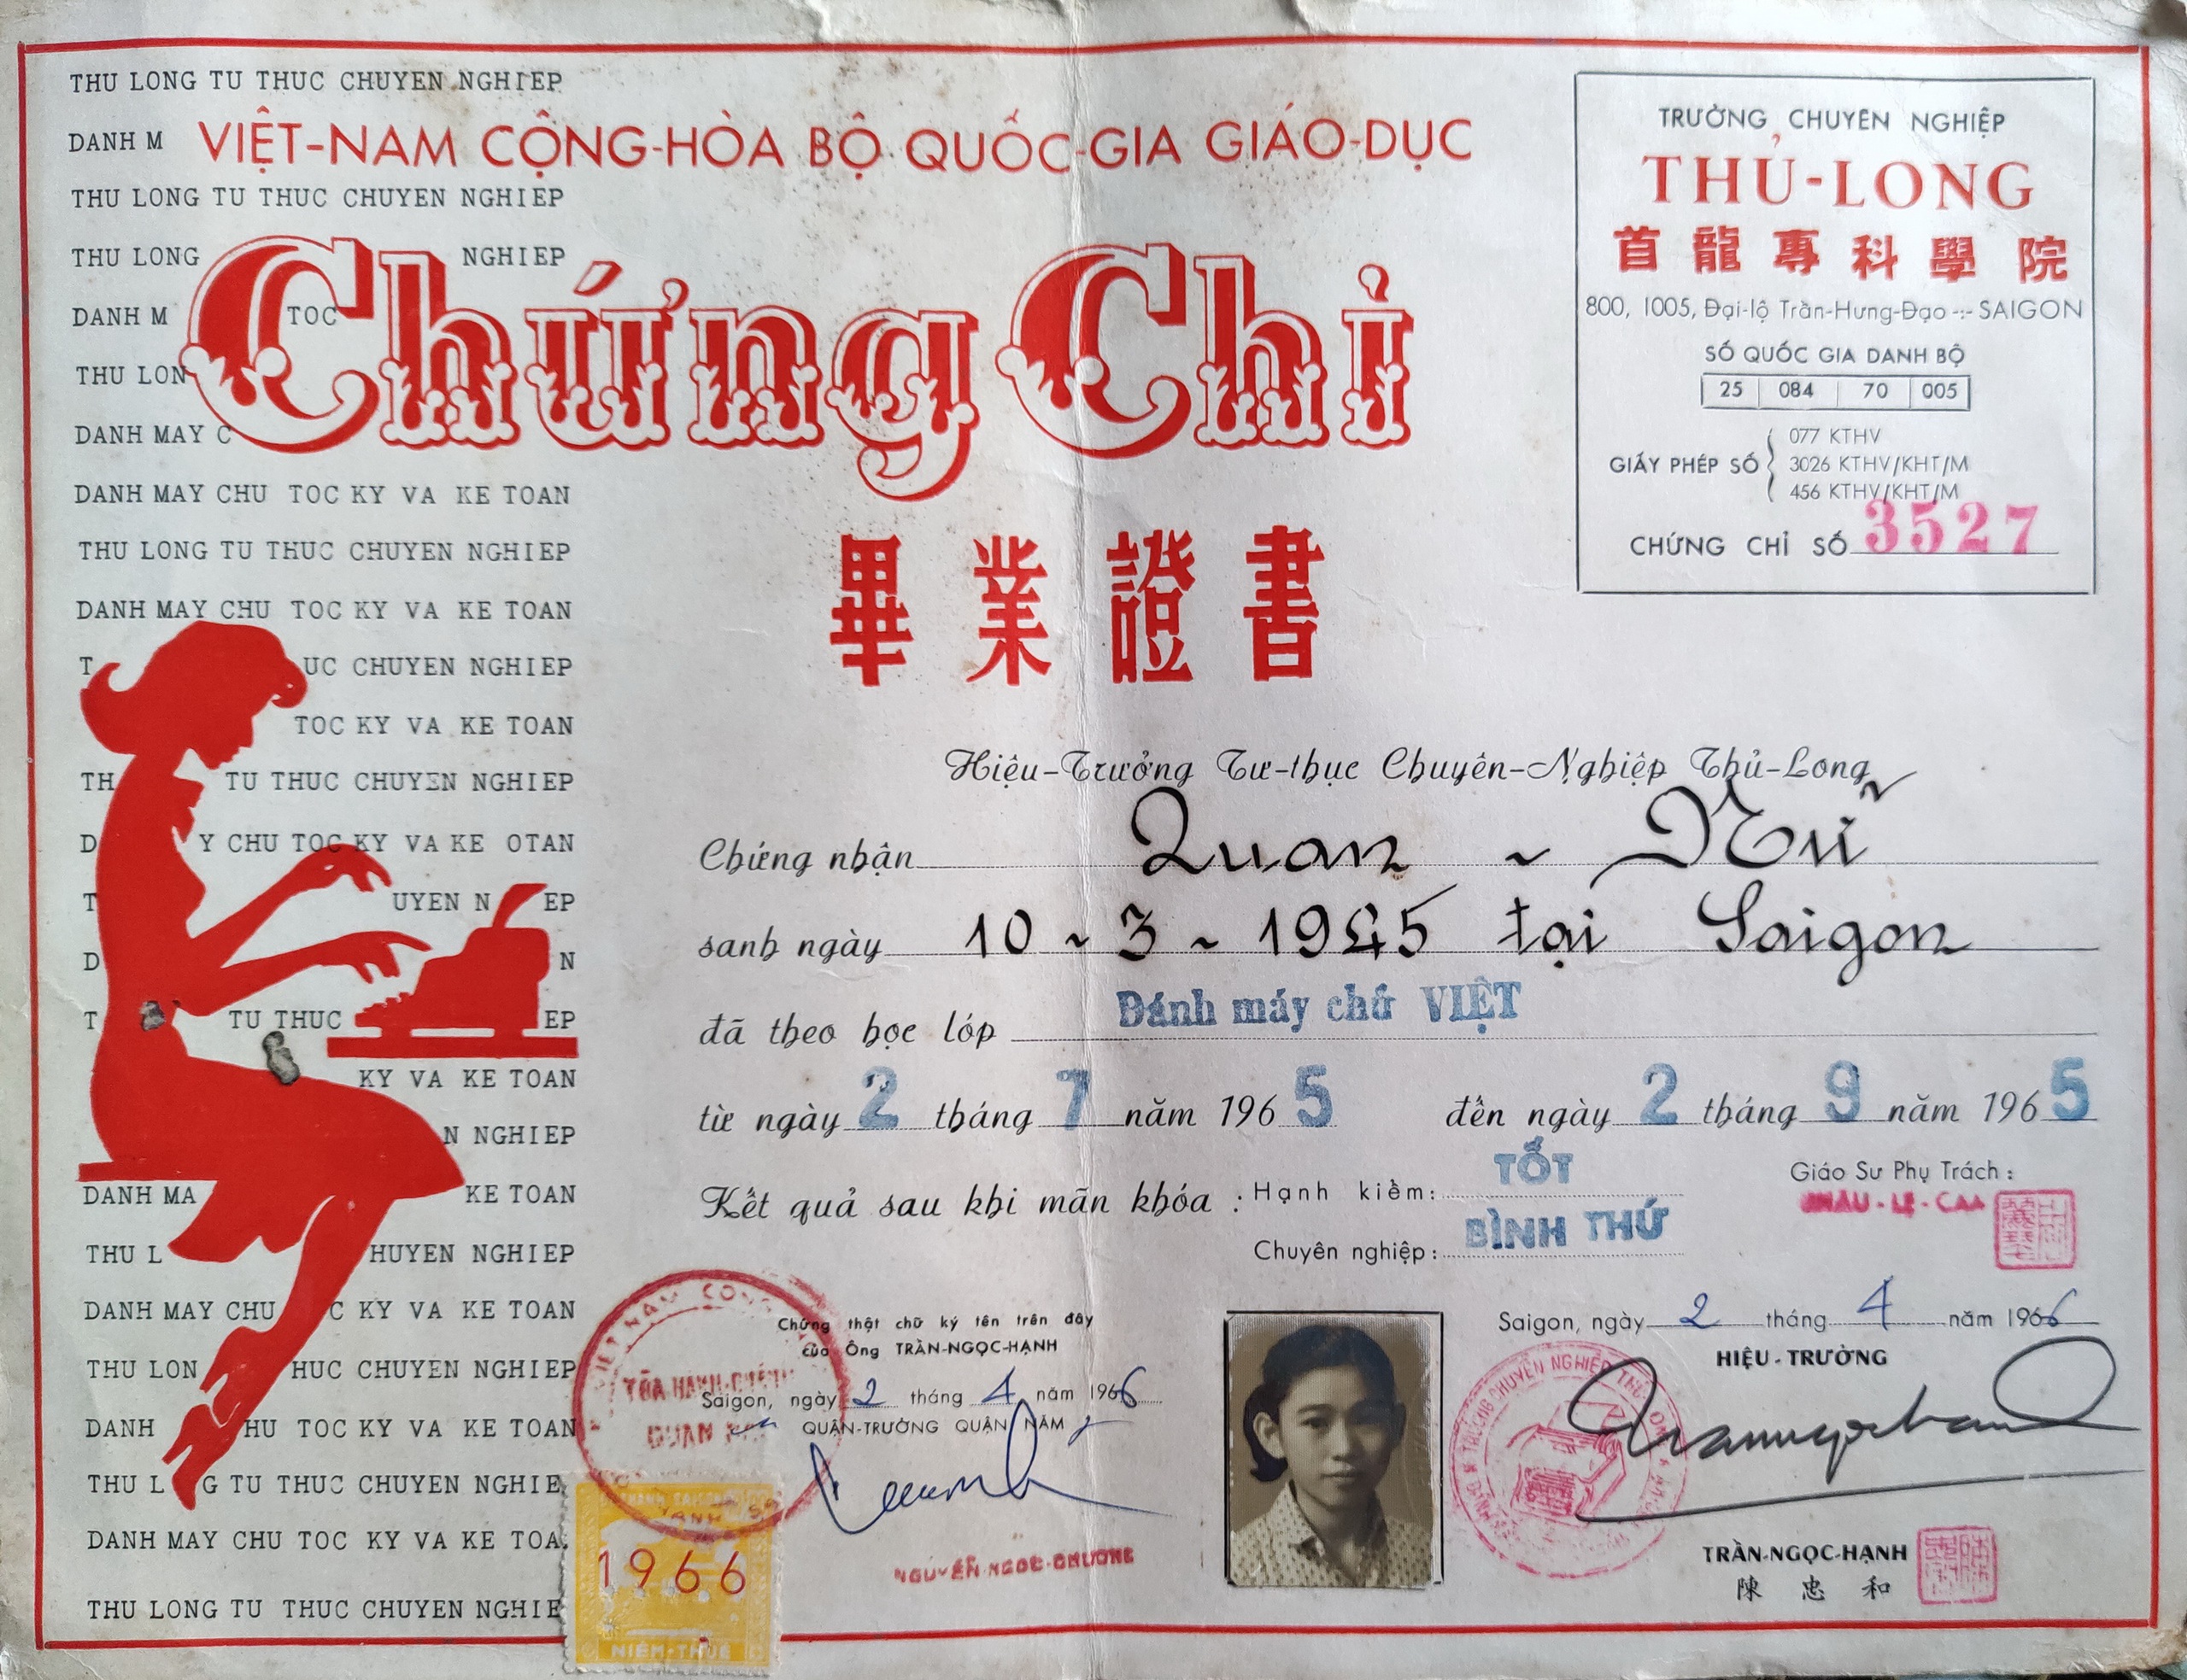 THU LONG TU THUC CHUYEN NGHIEP
DANH M
THU LONG TU THUC CHUYEN NGHIEP
THU LONG NGHIEP
DANH M TOC
THU LON
DANH MAY C
DANH MAY CHU TOC KY VA KE TOAN
THU LONG TU THUC CHUYEN NGHIEP
DANH MAY CHU TOC KY VA KE TOAN
T UC CHUYEN NGHIEP
TOC KY VA KE TOAN
TH TU THUC CHUYEN NGHIEP
D Y CHU TOC KY VA KE OTAN
T UYEN N EP
D N
T TU THUC EP
KY VA KE TOAN
N NGHIEP
DANH MA KE TOAN
THU L HUYEN NGHIEP
DANH MAY CHU C KY VA KE TOAN
THU LON HUC CHUYEN NGHIEP
DANH HU TOC KY VA KE TOAN
THU L G TU THUC CHUYEN NGHIE
DANH MAY CHU TOC KY VA KE TOA
THU LONG TU THUC CHUYEN NGHIE
VIỆT-NAM CỘNG-HÒA BỘ QUỐC-GIA GIÁO-DỤC
Chứng Chỉ
畢業證書
TRƯỜNG CHUYÊN NGHIỆP
THỦ-LONG
首龍專科學院
800, 1005, Đại-lộ Trần-Hưng-Đạo -:- SAIGON
SỐ QUỐC GIA DANH BỘ
25 084 70 005
GIẤY PHÉP SỐ
077 KTHV
3026 KTHV/KHT/M
456 KTHV/KHT/M
CHỨNG CHỈ SỐ 3527
Hiệu-Trưởng Tư-thục Chuyên-Nghiệp Thủ-Long
Chứng nhận Quan ~ Nữ
sanh ngày 10 ~ 3 ~ 1945 tại Saigon
đã theo học lớp Đánh máy chữ VIỆT
từ ngày 2 tháng 7 năm 1965 đến ngày 2 tháng 9 năm 1965
Kết quả sau khi mãn khóa : Hạnh kiểm: TỐT
Chuyên nghiệp: BÌNH THỨ
Giáo Sư Phụ Trách :
Chứng thật chữ ký tên trên đây
của Ông TRẦN-NGỌC-HẠNH
Saigon, ngày 2 tháng 4 năm 1966
QUẬN-TRƯỞNG QUẬN NĂM
NGUYỄN-NGOC-CHUONG
1966
NIÊM-THUẾ
Saigon, ngày 2 tháng 4 năm 1966
HIỆU-TRƯỞNG
TRẦN-NGỌC-HẠNH
陳忠和